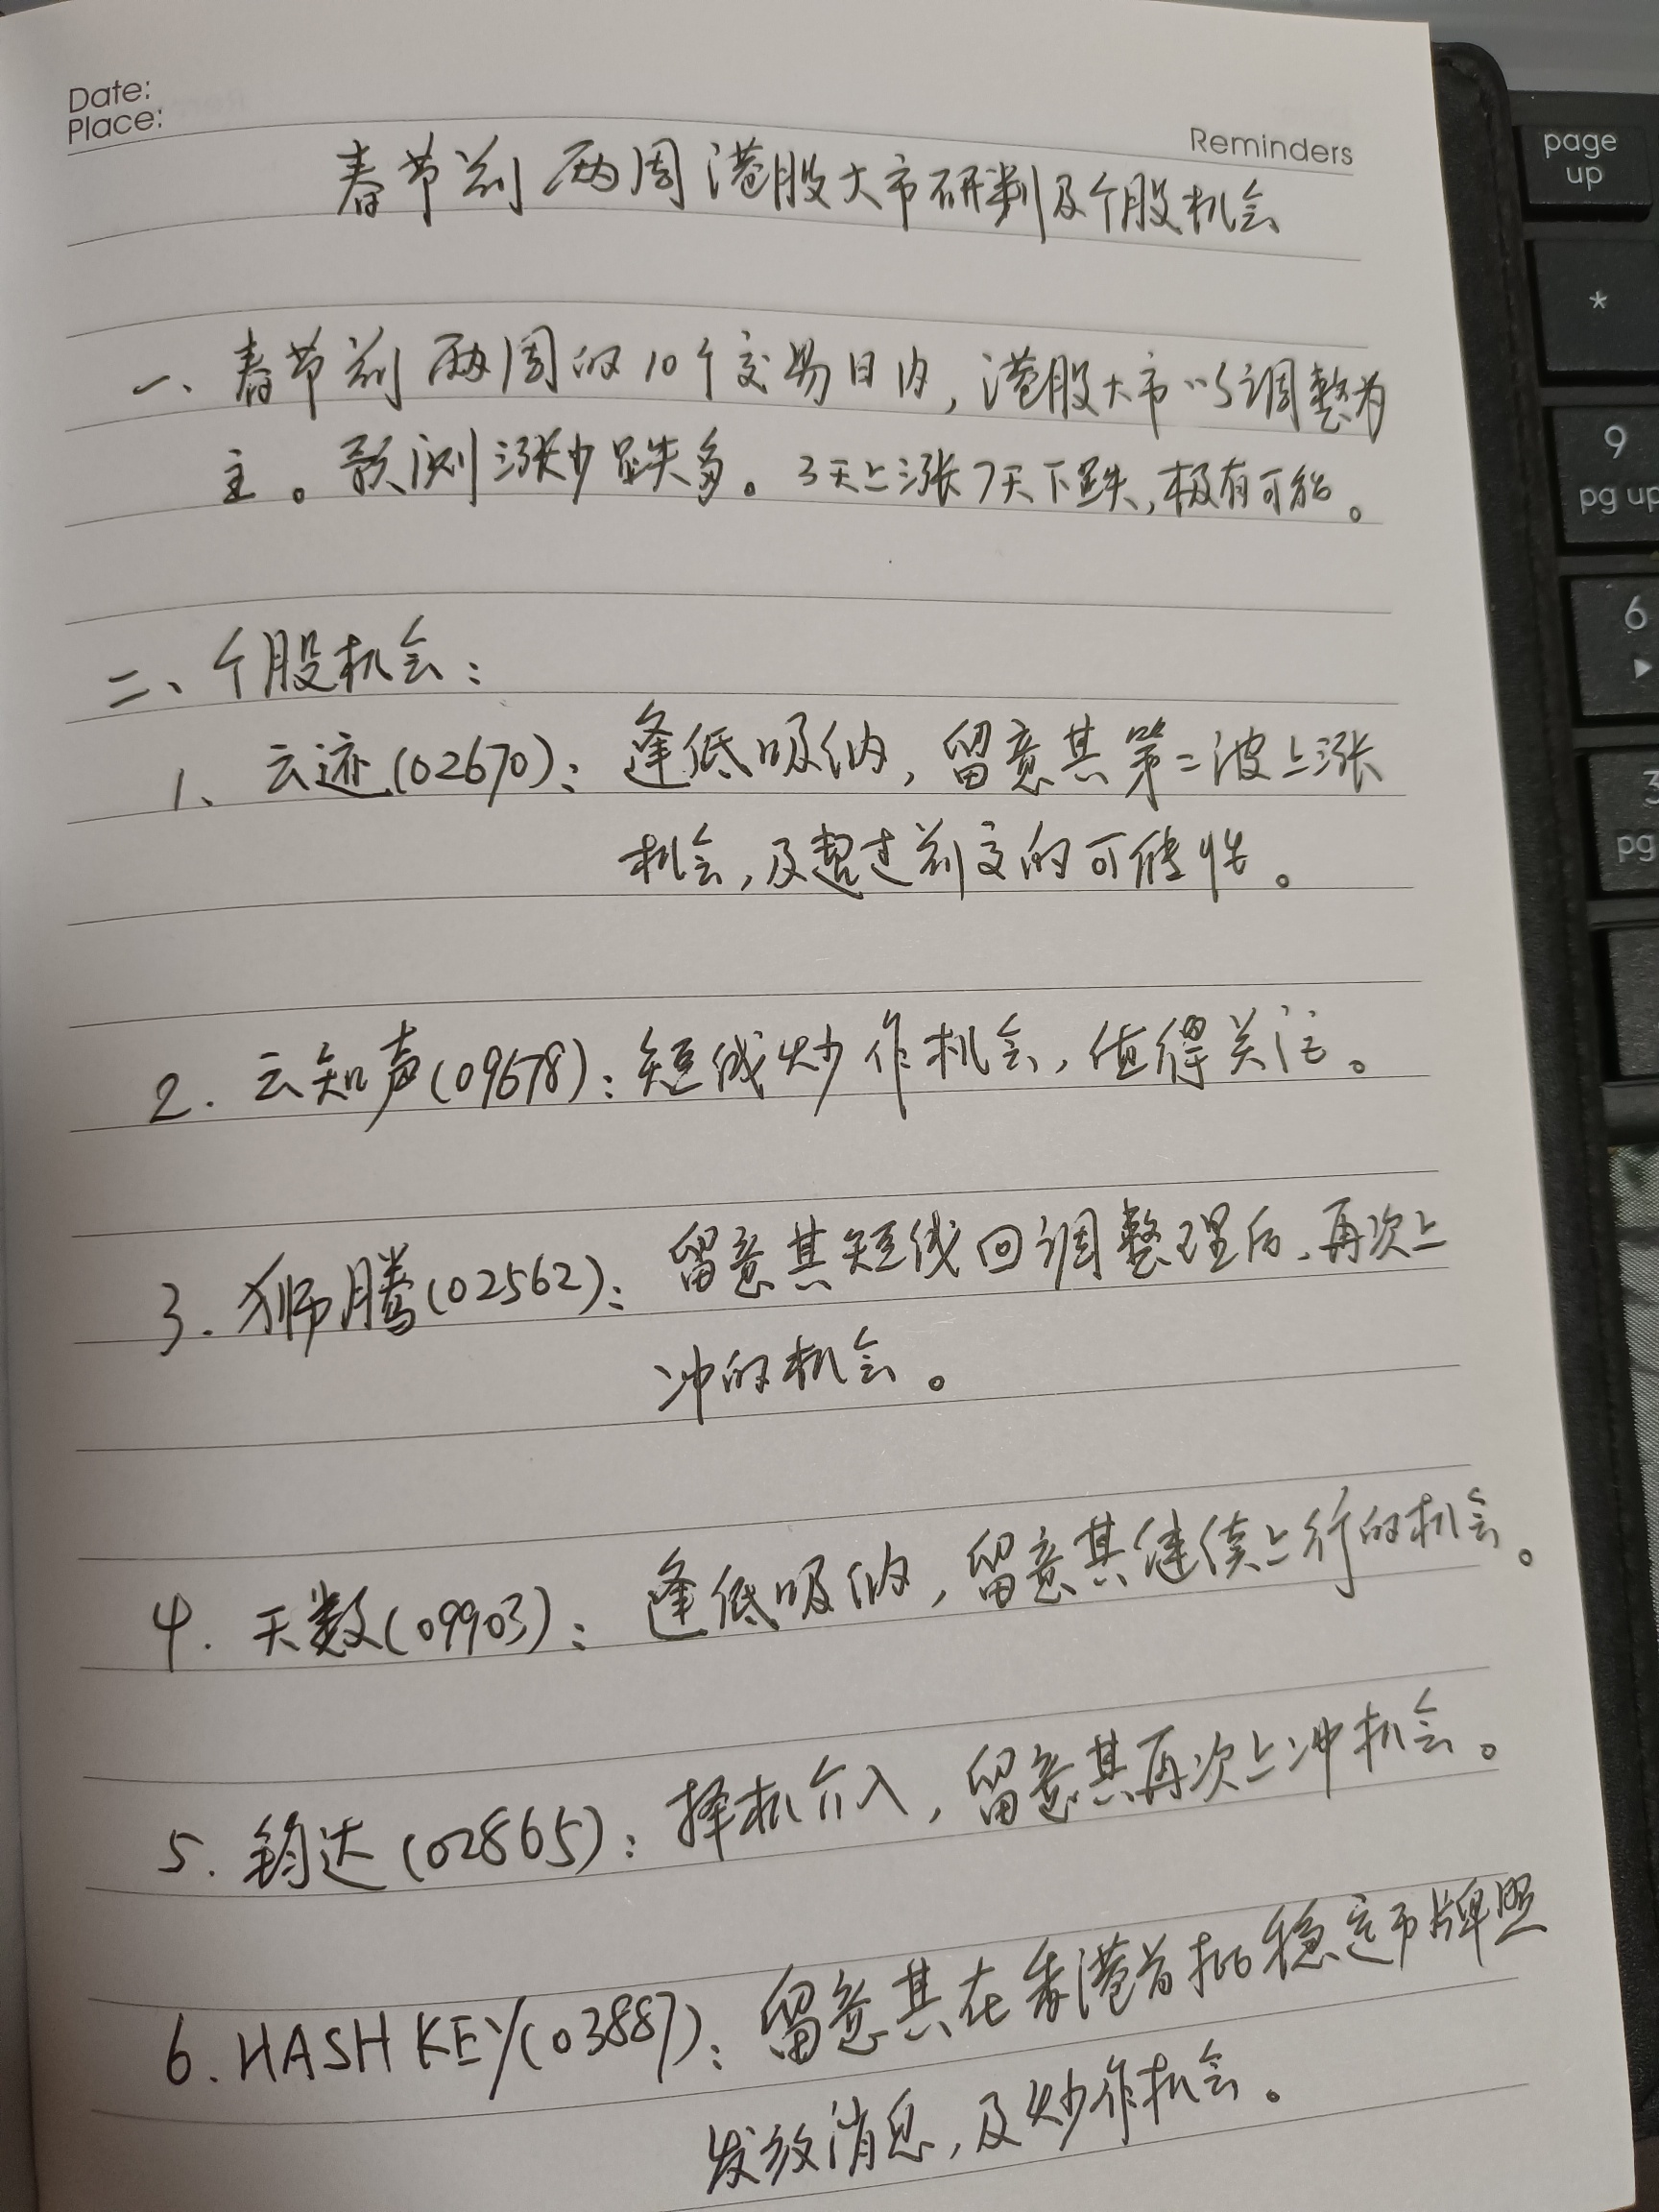 Date:
Place:
Reminders
春节前两周港股大市研判及个股机会
一、春节前两周的10个交易日内，港股大市以调整为
主。预测涨少跌多。3天上涨7天下跌，极有可能。
二、个股机会：
1、云迹(02670)：逢低吸纳，留意其第二波上涨
机会，及超过前高的可能性。
2. 云知声(09678)：短线炒作机会，值得关注。
3. 狮腾(02562)：留意其短线回调整理后，再次上
冲的机会。
4. 天数(09903)：逢低吸纳，留意其继续上行的机会。
5. 钧达(02865)：择机介入，留意其再次上冲机会。
6. HASH KEY(03887)：留意其在香港首批稳定币牌照
发放消息，及炒作机会。
page
up
*
9
pg up
6
3
pg